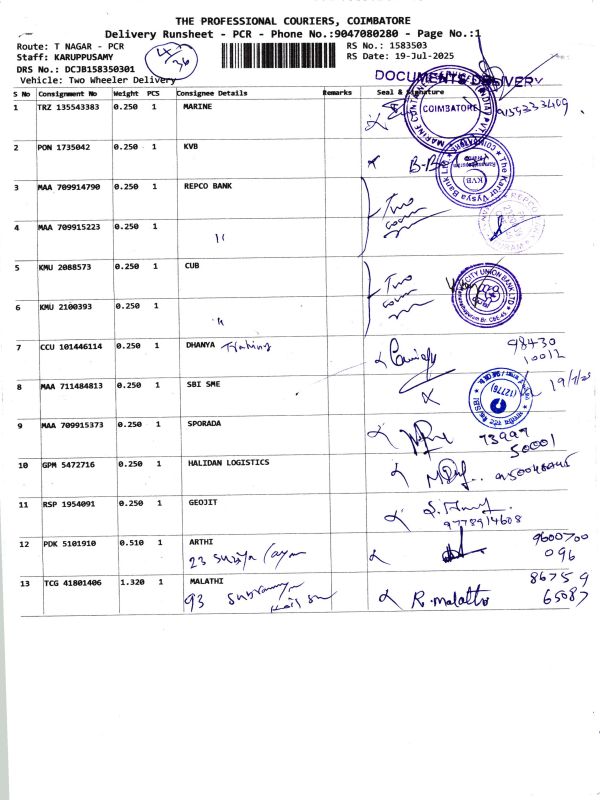 THE PROFESSIONAL COURIERS, COIMBATORE
Delivery Runsheet - PCR - Phone No.:9047080280 - Page No.:1
Route: T NAGAR - PCR
Staff: KARUPPUSAMY
DRS No.: DCJB158350301
Vehicle: Two Wheeler Delivery
RS No.: 1583503
RS Date: 19-Jul-2025
DOCUMENTS DELIVERY
S No Consignment No Weight PCS Consignee Details Remarks Seal & Signature
1 TRZ 135543383 0.250 1 MARINE
COIMBATORE
2 PON 1735042 0.250 1 KVB
The Karur Vysya Bank Ltd
KVB
3 MAA 709914790 0.250 1 REPCO BANK Two
4 MAA 709915223 0.250 1 "
5 KMU 2088573 0.250 1 CUB Two
CITY UNION BANK LTD
6 KMU 2100393 0.250 1 "
7 CCU 101446114 0.250 1 DHANYA 98430
10012
8 MAA 711484813 0.250 1 SBI SME 19/7/25
9 MAA 709915373 0.250 1 SPORADA 73997
50001
10 GPM 5472716 0.250 1 HALIDAN LOGISTICS
11 RSP 1954091 0.250 1 GEOJIT
9778914608
12 PDK 5101910 0.510 1 ARTHI 9600700
096
23
13 TCG 41801406 1.320 1 MALATHI 86759
65087
93 R. malathi